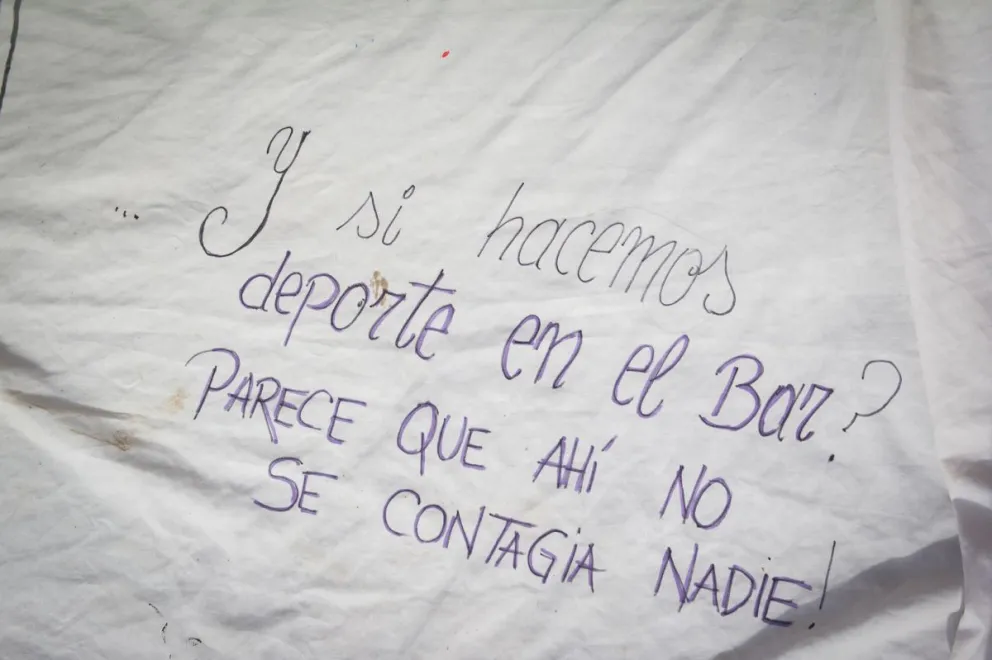 ... Y si hacemos
deporte en el Bar?
PARECE QUE AHÍ NO
SE CONTAGIA NADIE!